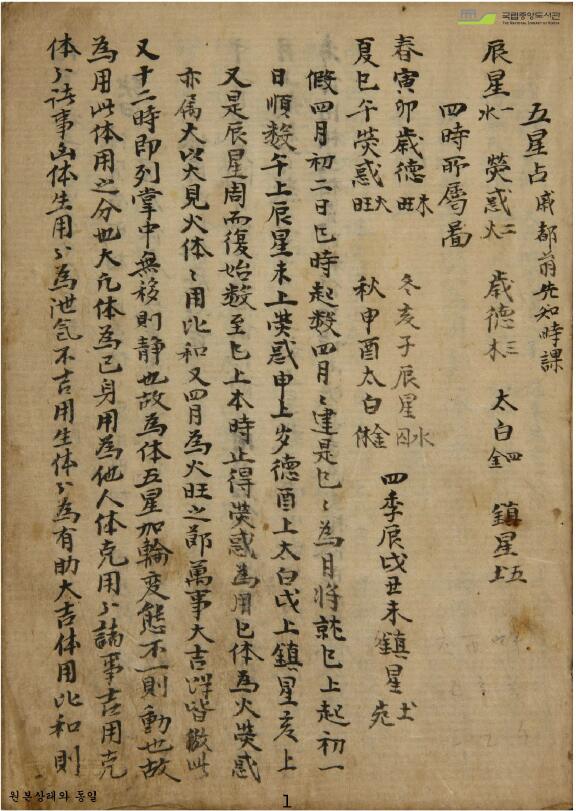 국립중앙도서관
THE NATIONAL LIBRARY OF KOREA
五星占 成都翁先知時課
辰星一水 熒惑二火 歲德三木 太白四金 鎮星五土
四時所屬圖
春寅卯歲德木旺 冬亥子辰星水囚
夏巳午熒惑火旺 秋申酉太白金休 四季辰戌丑未鎮星土
假四月初二日巳時起数四月〻建是巳〻為月將就巳上起初一
日順数午上辰星未上熒惑申上岁德酉上太白戌上鎮星亥上
又是辰星周而復始数至巳上本時止得熒惑為用巳体為火熒惑
亦属火以火見火体〻用比和又四月為火旺之節萬事大吉泮皆倣此
又十二時即列掌中無移則静也故為体五星加輪变態不一則動也故
為用此体用之分也大凡体為己身用為他人体克用〻諸事吉用克
体〻諸事凶体生用〻為泄氣不吉用生体〻為有助大吉体用比和則
원본상태와 동일
1